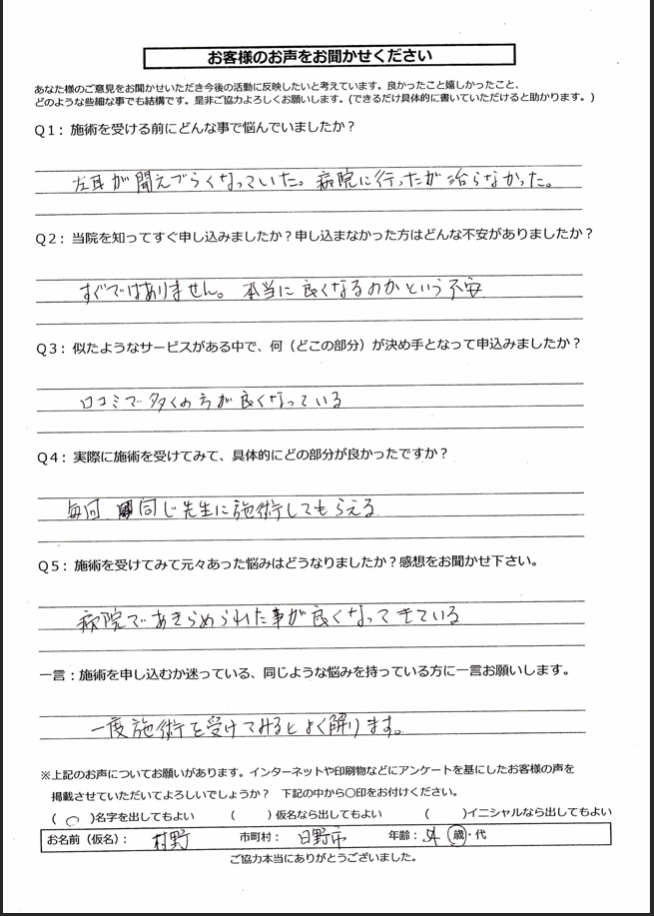 お客様のお声をお聞かせください
あなた様のご意見をお聞かせいただき今後の活動に反映したいと考えています。良かったこと嬉しかったこと、
どのような些細な事でも結構です。是非ご協力よろしくお願いします。(できるだけ具体的に書いていただけると助かります。)
Q1：施術を受ける前にどんな事で悩んでいましたか？
左耳が聞えづらくなっていた。病院に行ったが治らなかった。
Q2：当院を知ってすぐ申し込みましたか？申し込まなかった方はどんな不安がありましたか？
すぐではありません。本当に良くなるのかという不安
Q3：似たようなサービスがある中で、何（どこの部分）が決め手となって申込みましたか？
口コミで多くの方が良くなっている
Q4：実際に施術を受けてみて、具体的にどの部分が良かったですか？
毎回 同じ先生に施術してもらえる
Q5：施術を受けてみて元々あった悩みはどうなりましたか？感想をお聞かせ下さい。
病院であきらめられた事が良くなってきている
一言：施術を申し込むか迷っている、同じような悩みを持っている方に一言お願いします。
一度施術を受けてみるとよく解ります。
※上記のお声についてお願いがあります。インターネットや印刷物などにアンケートを基にしたお客様の声を
掲載させていただいてよろしいでしょうか？ 下記の中から〇印をお付けください。
(○)名字を出してもよい ( )仮名なら出してもよい ( )イニシャルなら出してもよい
お名前（仮名）： 村野 市町村： 日野市 年齢： 歳・代
ご協力本当にありがとうございました。